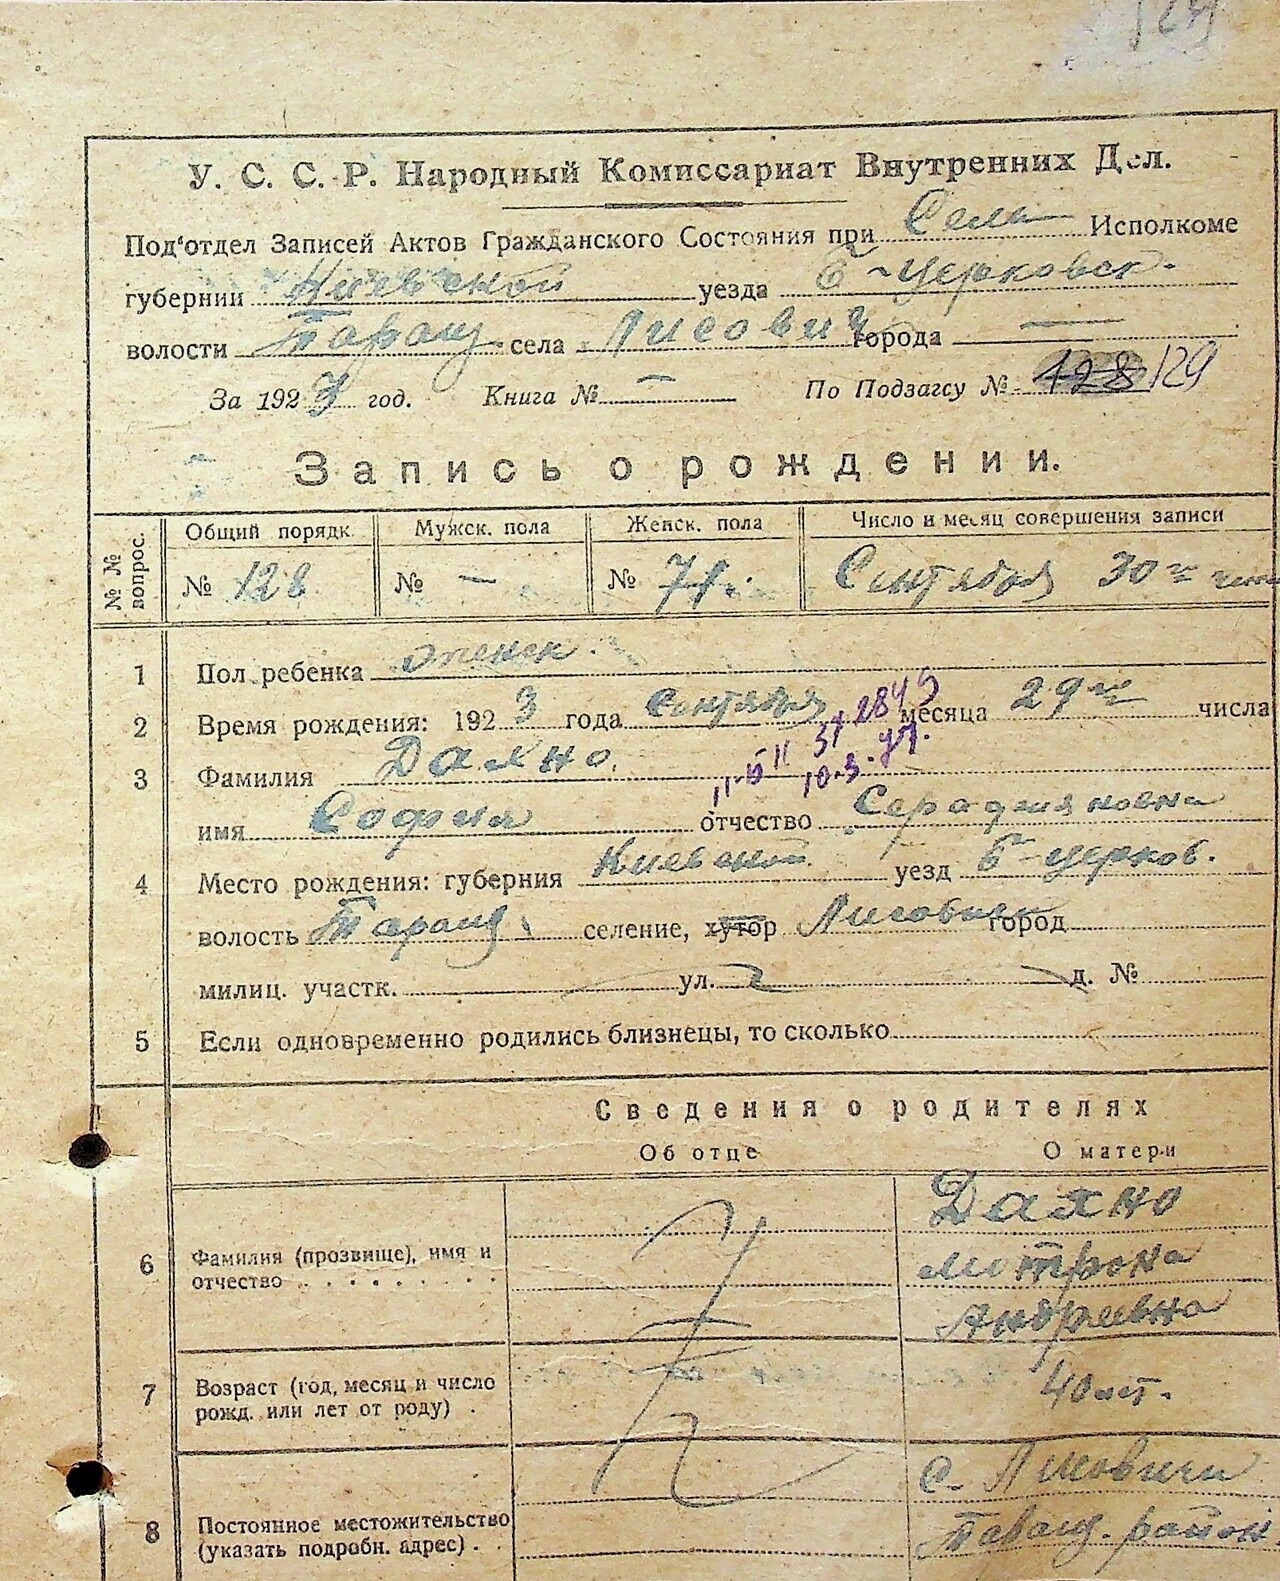 У. С. С. Р. Народный Комиссариат Внутренних Дел.
Под‘отдел Записей Актов Гражданского Состояния при Села Исполкоме
губернии Киевской уезда Б-Церковск.
волости Таращ. села Лисович города —
За 1923 год. Книга № — По Подзагсу № 128 129
Запись о рождении.
№ № вопрос. Общий порядк. Мужск. пола Женск. пола Число и месяц совершения записи
№ 128 № — № 71. Сентября 30го
1 Пол ребенка женск.
2 Время рождения: 1923 года Сентября месяца 29го числа
3 Фамилия Дахно.
имя София отчество
4 Место рождения: губерния Киевской уезд Б-церков.
волость Таращ. селение, хутор Лисович город
милиц. участк. ул. д. №
5 Если одновременно родились близнецы, то сколько
Сведения о родителях
Об отце О матери
6 Фамилия (прозвище), имя и отчество Дахно
Мотрона
Андреевна
7 Возраст (год, месяц и число рожд. или лет от роду) 40 лет.
8 Постоянное местожительство (указать подробн. адрес) с. Лисовичи
Таращ. район